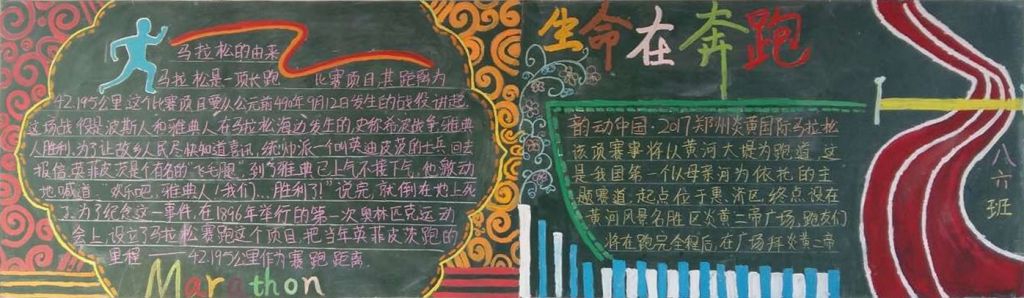 马拉松的由来
马拉松是一项长跑 比赛项目,其跑离为
42.195公里,这个比赛项目要从公元前490年9月12日发生的战役讲起
这场战役是波斯人和雅典人在马拉松海边发生的,史称希波战争,雅典
人胜利,为了让故乡人民尽快知道喜讯,统帅派一个叫英迪皮茨的士兵回去
报信,英菲皮茨是个有名的“飞毛腿”,到了雅典已上气不接下气,他激动
地喊道“欢乐吧,雅典人!我们.....胜利了!”说完,就倒在地上死
了,为了纪念这一事件,在1896年举行的第一次奥林匹克运动
会上,设立了马拉松赛跑这个项目,把当年英菲皮茨跑的
里程——42.195公里作为赛跑距离.
Marathon
生命在奔跑
韵动中国·2017郑州炎黄国际马拉松
该项赛事将从黄河大堤为跑道,这
是我国第一个以母亲河为依托的主
题赛道,起点位于惠济区,终点设在
黄河风景名胜区炎黄二帝广场,跑友们
将在跑完全程后,在广场拜炎黄二帝
八六班